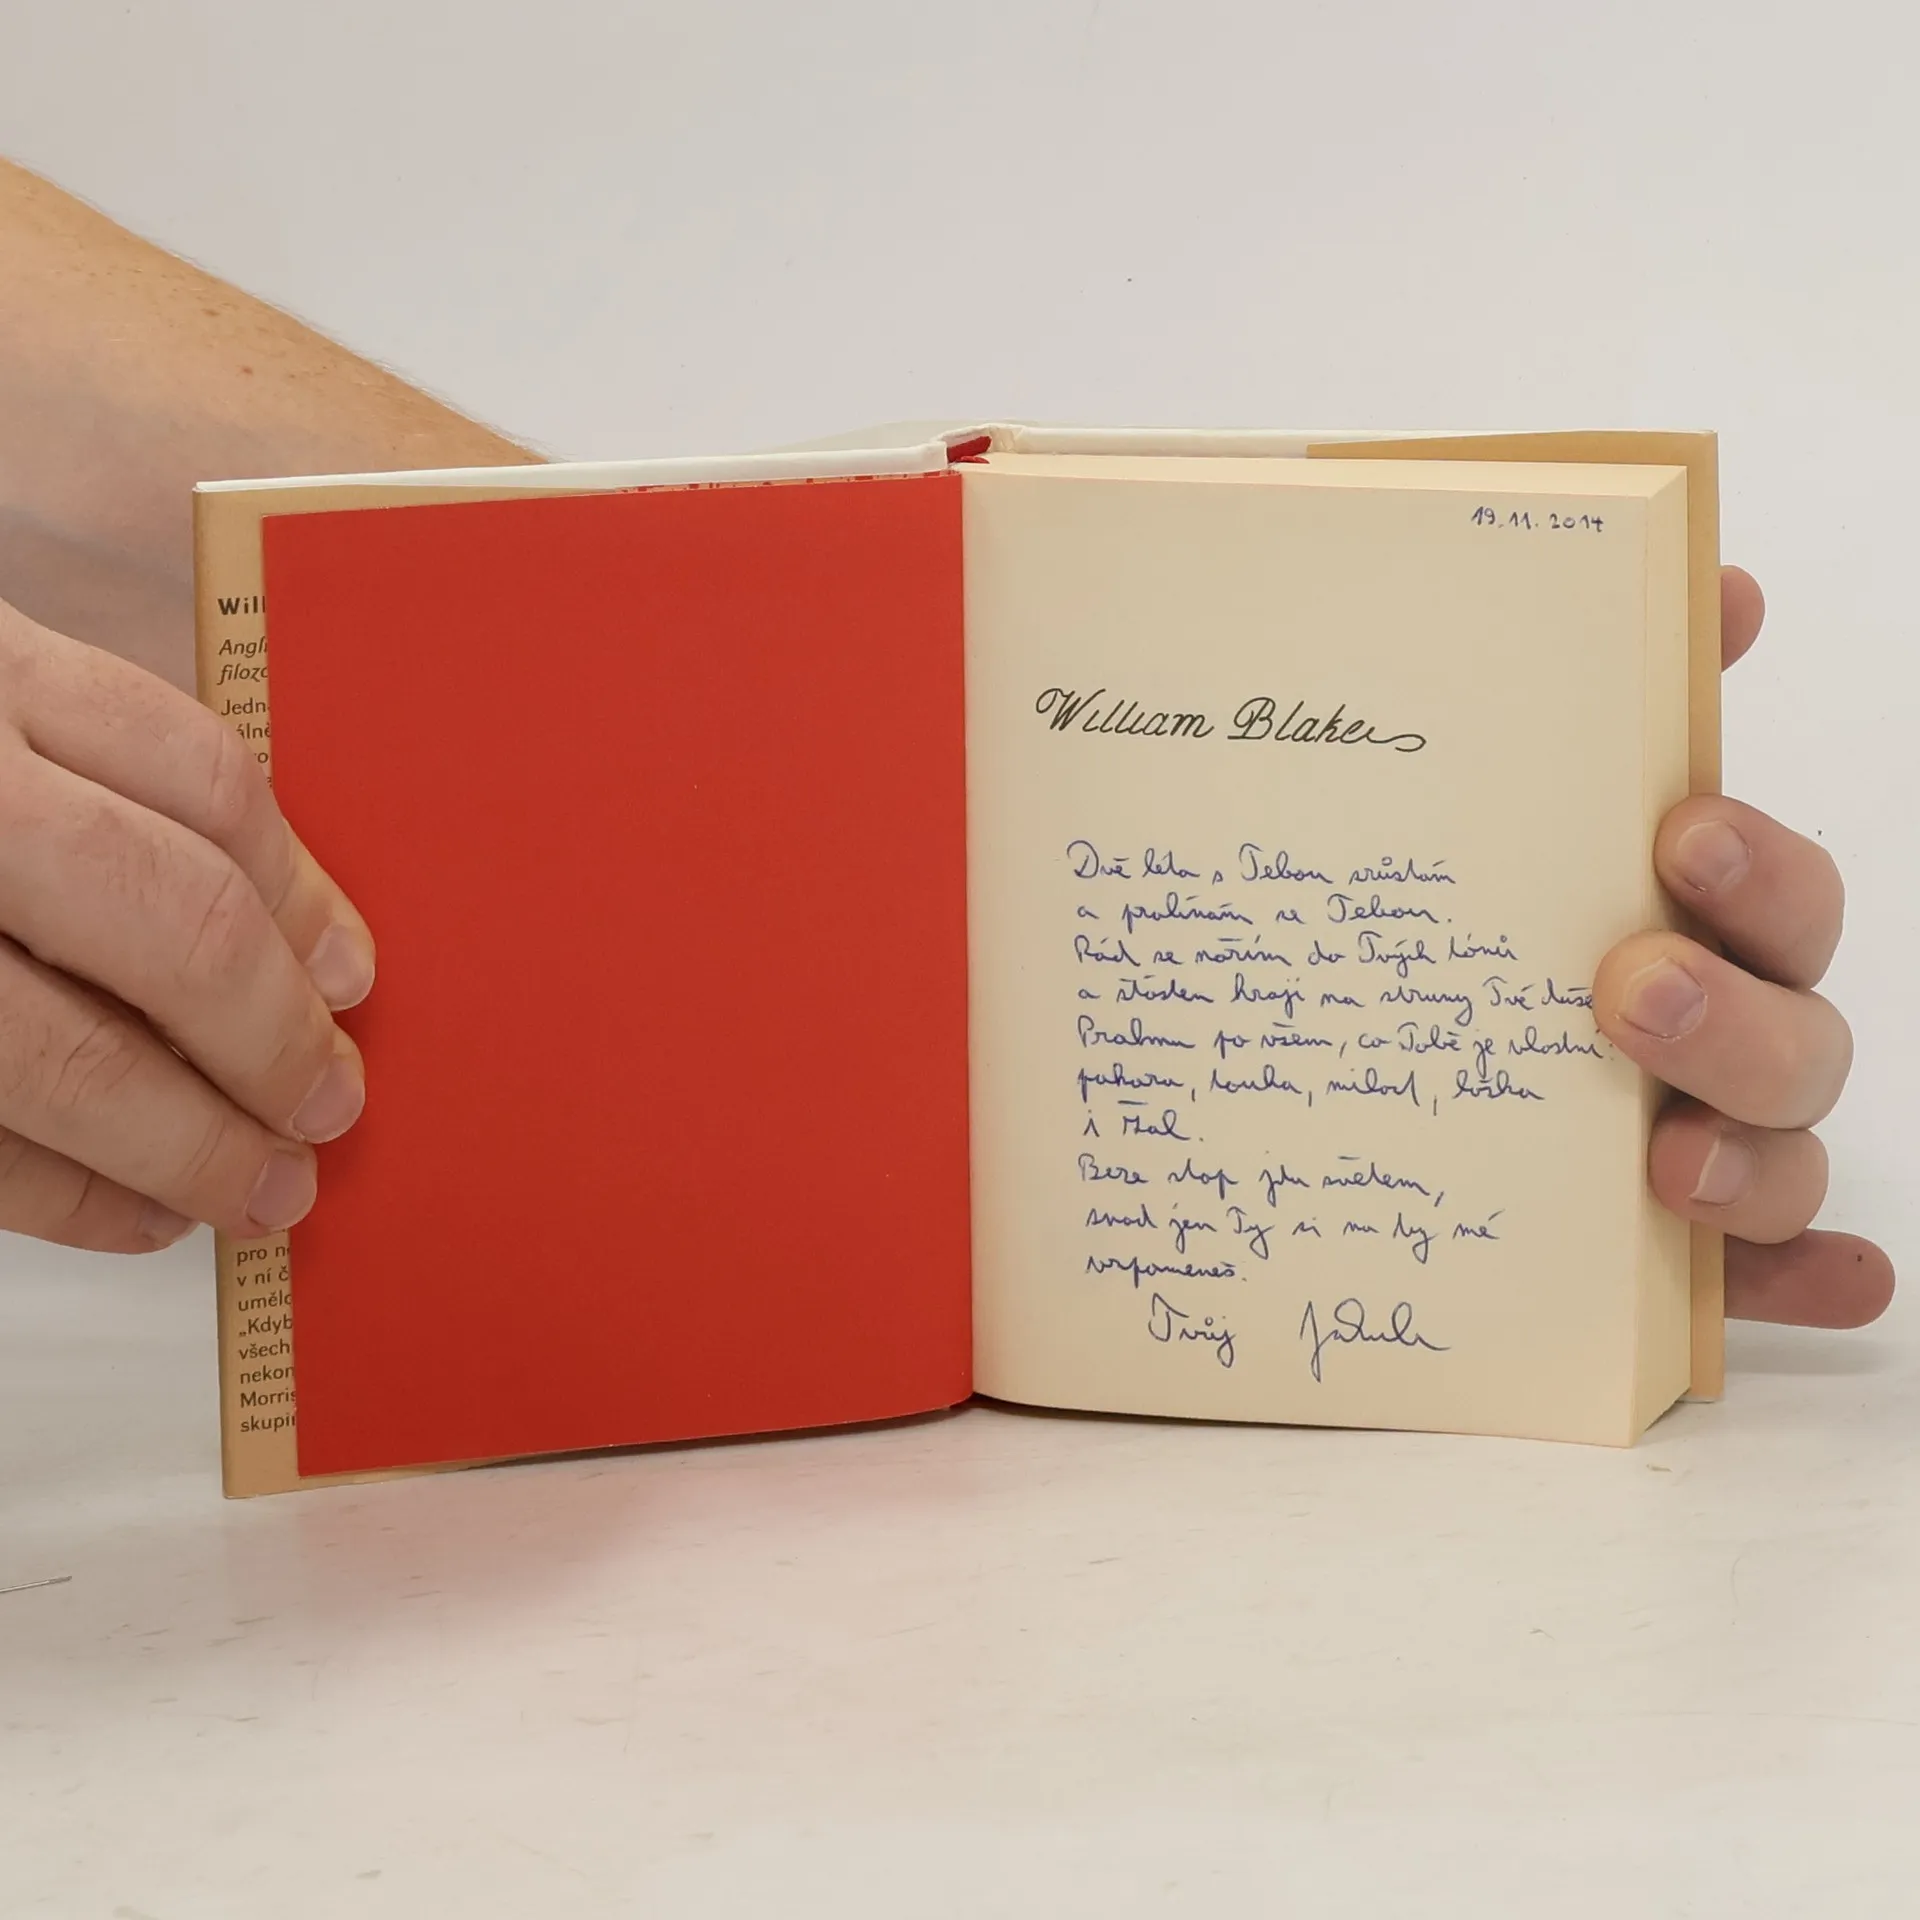 Will
Angli
filozo
Jedn
álně
vo
pro ne
v ní č
umělc
„Kdyb
všech
nekon
Morris
skupin
19.11.2014
William Blake
Dvě léta s Tebou srůstám
a prolínám se Tebou.
Rád se nořím do Tvých tónů
a štosten hraji na struny Tvé duše
Prahnu po všem, co Tobě je vlastní:
pokora, touha, milost, láska
i žal.
Beze stop jdu světem,
snad jen Ty si na ty mé
vzpomeneš.
Tvůj Jakub